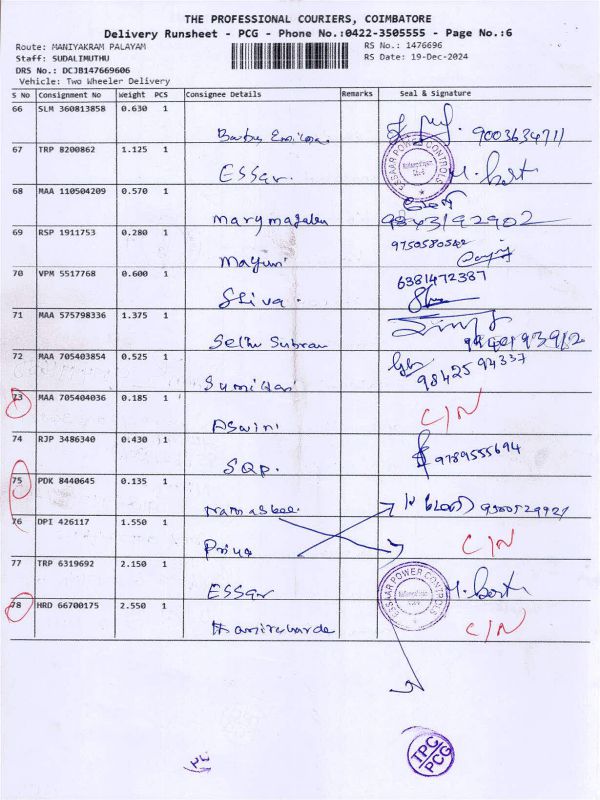 THE PROFESSIONAL COURIERS, COIMBATORE
Delivery Runsheet - PCG - Phone No.:0422-3505555 - Page No.:6
Route: MANIYAKRAM PALAYAM
RS No.: 1476696
Staff: SUDALIMUTHU
RS Date: 19-Dec-2024
DRS No.: DCJB147669606
Vehicle: Two Wheeler Delivery
S No Consignment No Weight PCS Consignee Details Remarks Seal & Signature
66 SLM 360813858 0.630 1
9003634711
67 TRP 8200862 1.125 1
ESSar.
ESSAAR POWER CONTROLS
68 MAA 110504209 0.570 1
Marymagalen
9843192902
69 RSP 1911753 0.280 1
9750580542
Mayuri
70 VPM 5517768 0.600 1
6381472387
Shiva.
71 MAA 575798336 1.375 1
Sethu Subram
72 MAA 705403854 0.525 1
98425 94337
73 MAA 705404036 0.185 1
C/N
Aswini
74 RJP 3486340 0.430 1
9789555694
SQP.
75 PDK 8440645 0.135 1
76 DPI 426117 1.550 1
C/N
Priya
77 TRP 6319692 2.150 1
ESSAAR POWER CONTROLS
ESSar
78 HRD 66700175 2.550 1
C/N
TPC
PCG